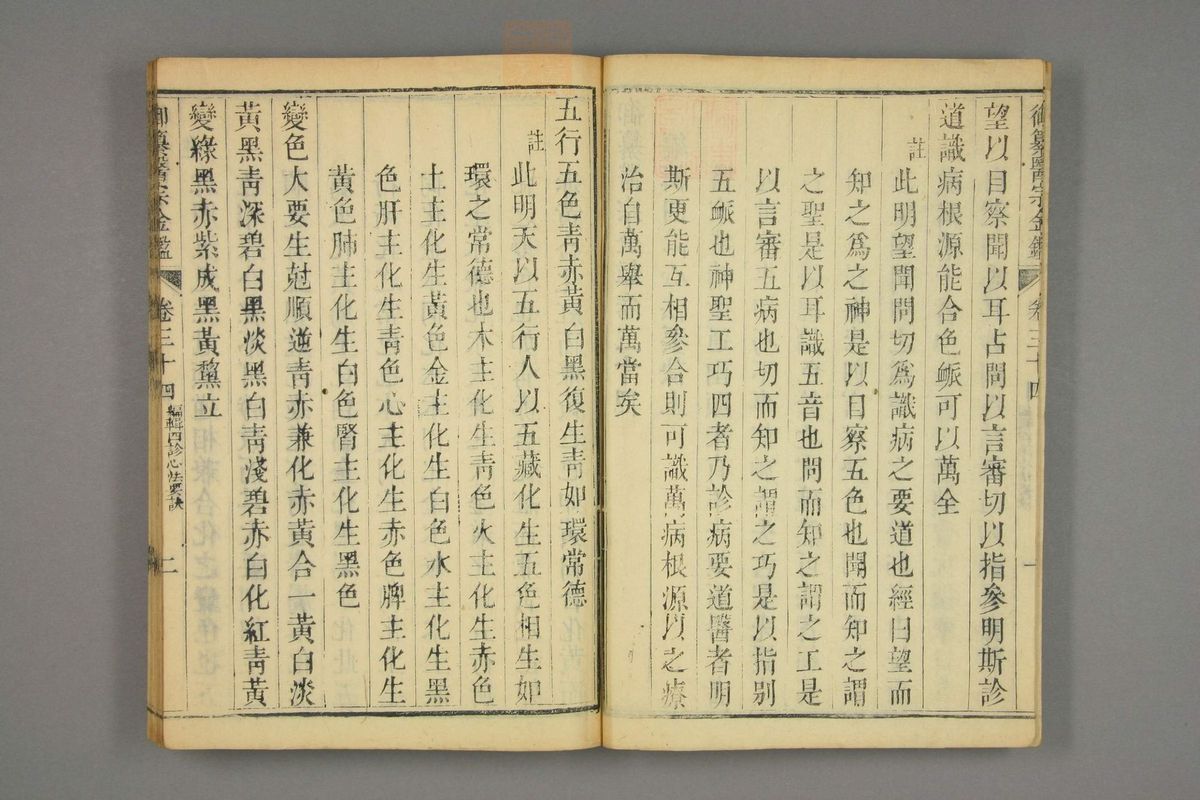 御纂醫宗金鑑 卷三十四 一
望以目察聞以耳占問以言審切以指參明斯診
道識病根源能合色脈可以萬全
註
此明望聞問切為識病之要道也經曰望而
知之為之神是以目察五色也聞而知之謂
之聖是以耳識五音也問而知之謂之工是
以言審五病也切而知之謂之巧是以指別
五脈也神聖工巧四者乃診病要道醫者明
斯更能互相參合則可識萬病根源以之療
治自萬舉而萬當矣
五行五色青赤黃白黑復生青如環常德
註
此明天以五行人以五藏化生五色相生如
環之常德也木主化生青色火主化生赤色
土主化生黃色金主化生白色水主化生黑
色肝主化生青色心主化生赤色脾主化生
黃色肺主化生白色腎主化生黑色
變色大要生尅順逆青赤兼化赤黃合一黃白淡
黃黑青深碧白黑淡黑白青淺碧赤白化紅青黃
變綠黑赤紫成黑黃黧立
御纂醫宗金鑑 卷三十四 編輯四診心法要訣 二